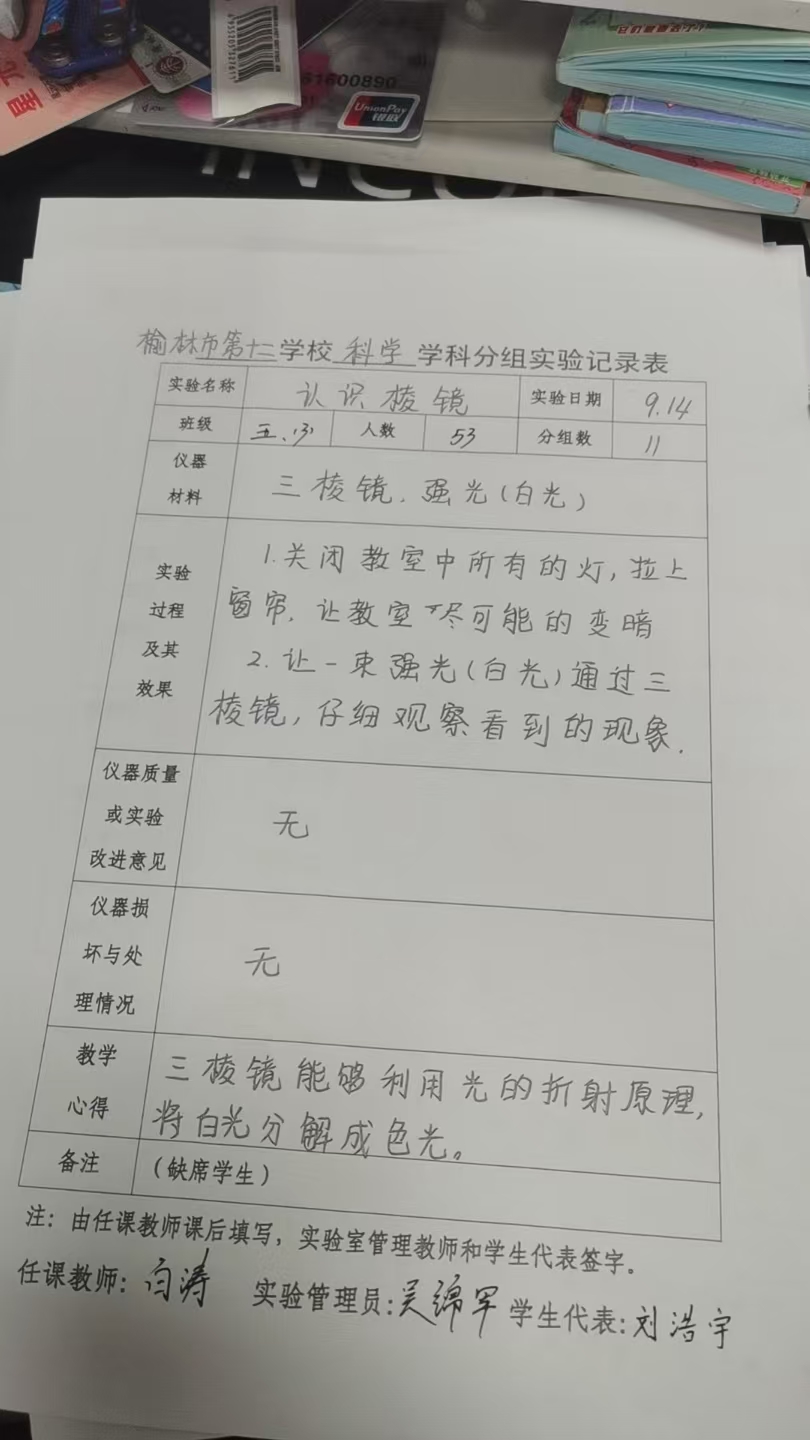 1600890
UnionPay
银联
榆林市第十二学校 科学 学科分组实验记录表
实验名称 认识棱镜 实验日期 9.14
班级 五.(3) 人数 53 分组数 11
仪器
材料
三棱镜.强光(白光)
实验
过程
及其
效果
1.关闭教室中所有的灯,拉上
窗帘.让教室尽可能的变暗
2.让一束强光(白光)通过三
棱镜,仔细观察看到的现象.
仪器质量
或实验
改进意见
无
仪器损
坏与处
理情况
无
教学
心得
三棱镜能够利用光的折射原理,
将白光分解成色光。
备注 (缺席学生)
注：由任课教师课后填写，实验室管理教师和学生代表签字。
任课教师:白涛 实验管理员:吴绵军 学生代表:刘浩宇